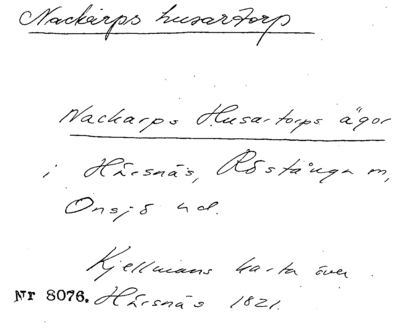 Nackarps husartorp
Nackarps Husartorps ägor
i Härsnäs, Röstånga m,
Onsjö hd.
Kjellmans karta över
Nr 8076. Härsnäs 1821.